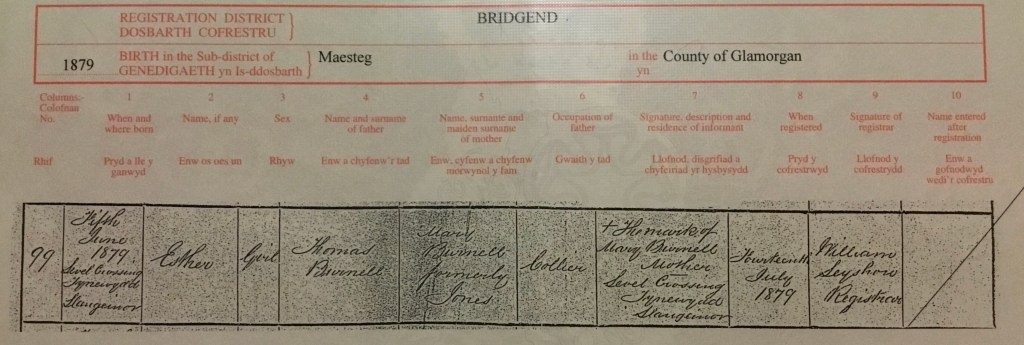 REGISTRATION DISTRICT
DOSBARTH COFRESTRU
BRIDGEND
1879
BIRTH in the Sub-district of
GENEDIGAETH yn Is-ddosbarth
Maesteg
in the
yn
County of Glamorgan
Columns:-
Colofnau
No.
Rhif
1
When and
where born
Pryd a lle y
ganwyd
2
Name, if any
Enw os oes un
3
Sex
Rhyw
4
Name and surname
of father
Enw a chyfenw'r tad
5
Name, surname and
maiden surname
of mother
Enw, cyfenw a chyfenw
morwynol y fam
6
Occupation of
father
Gwaith y tad
7
Signature, description and
residence of informant
Llofnod, disgrifiad a
chyfeiriad yr hysbysydd
8
When
registered
Pryd y
cofrestrwyd
9
Signature of
registrar
Llofnod y
cofrestrydd
10
Name entered
after
registration
Enw a
gofnodwyd
wedi'r cofrestru
99
Fifth
June
1879
Level Crossing
Tynewydd
Llangeinor
Esther
Girl
Thomas
Burnell
Mary
Burnell
formerly
Jones
Collier
+ The mark of
Mary Burnell
Mother
Level Crossing
Tynewydd
Llangeinor
Fourteenth
July
1879
William
Registrar